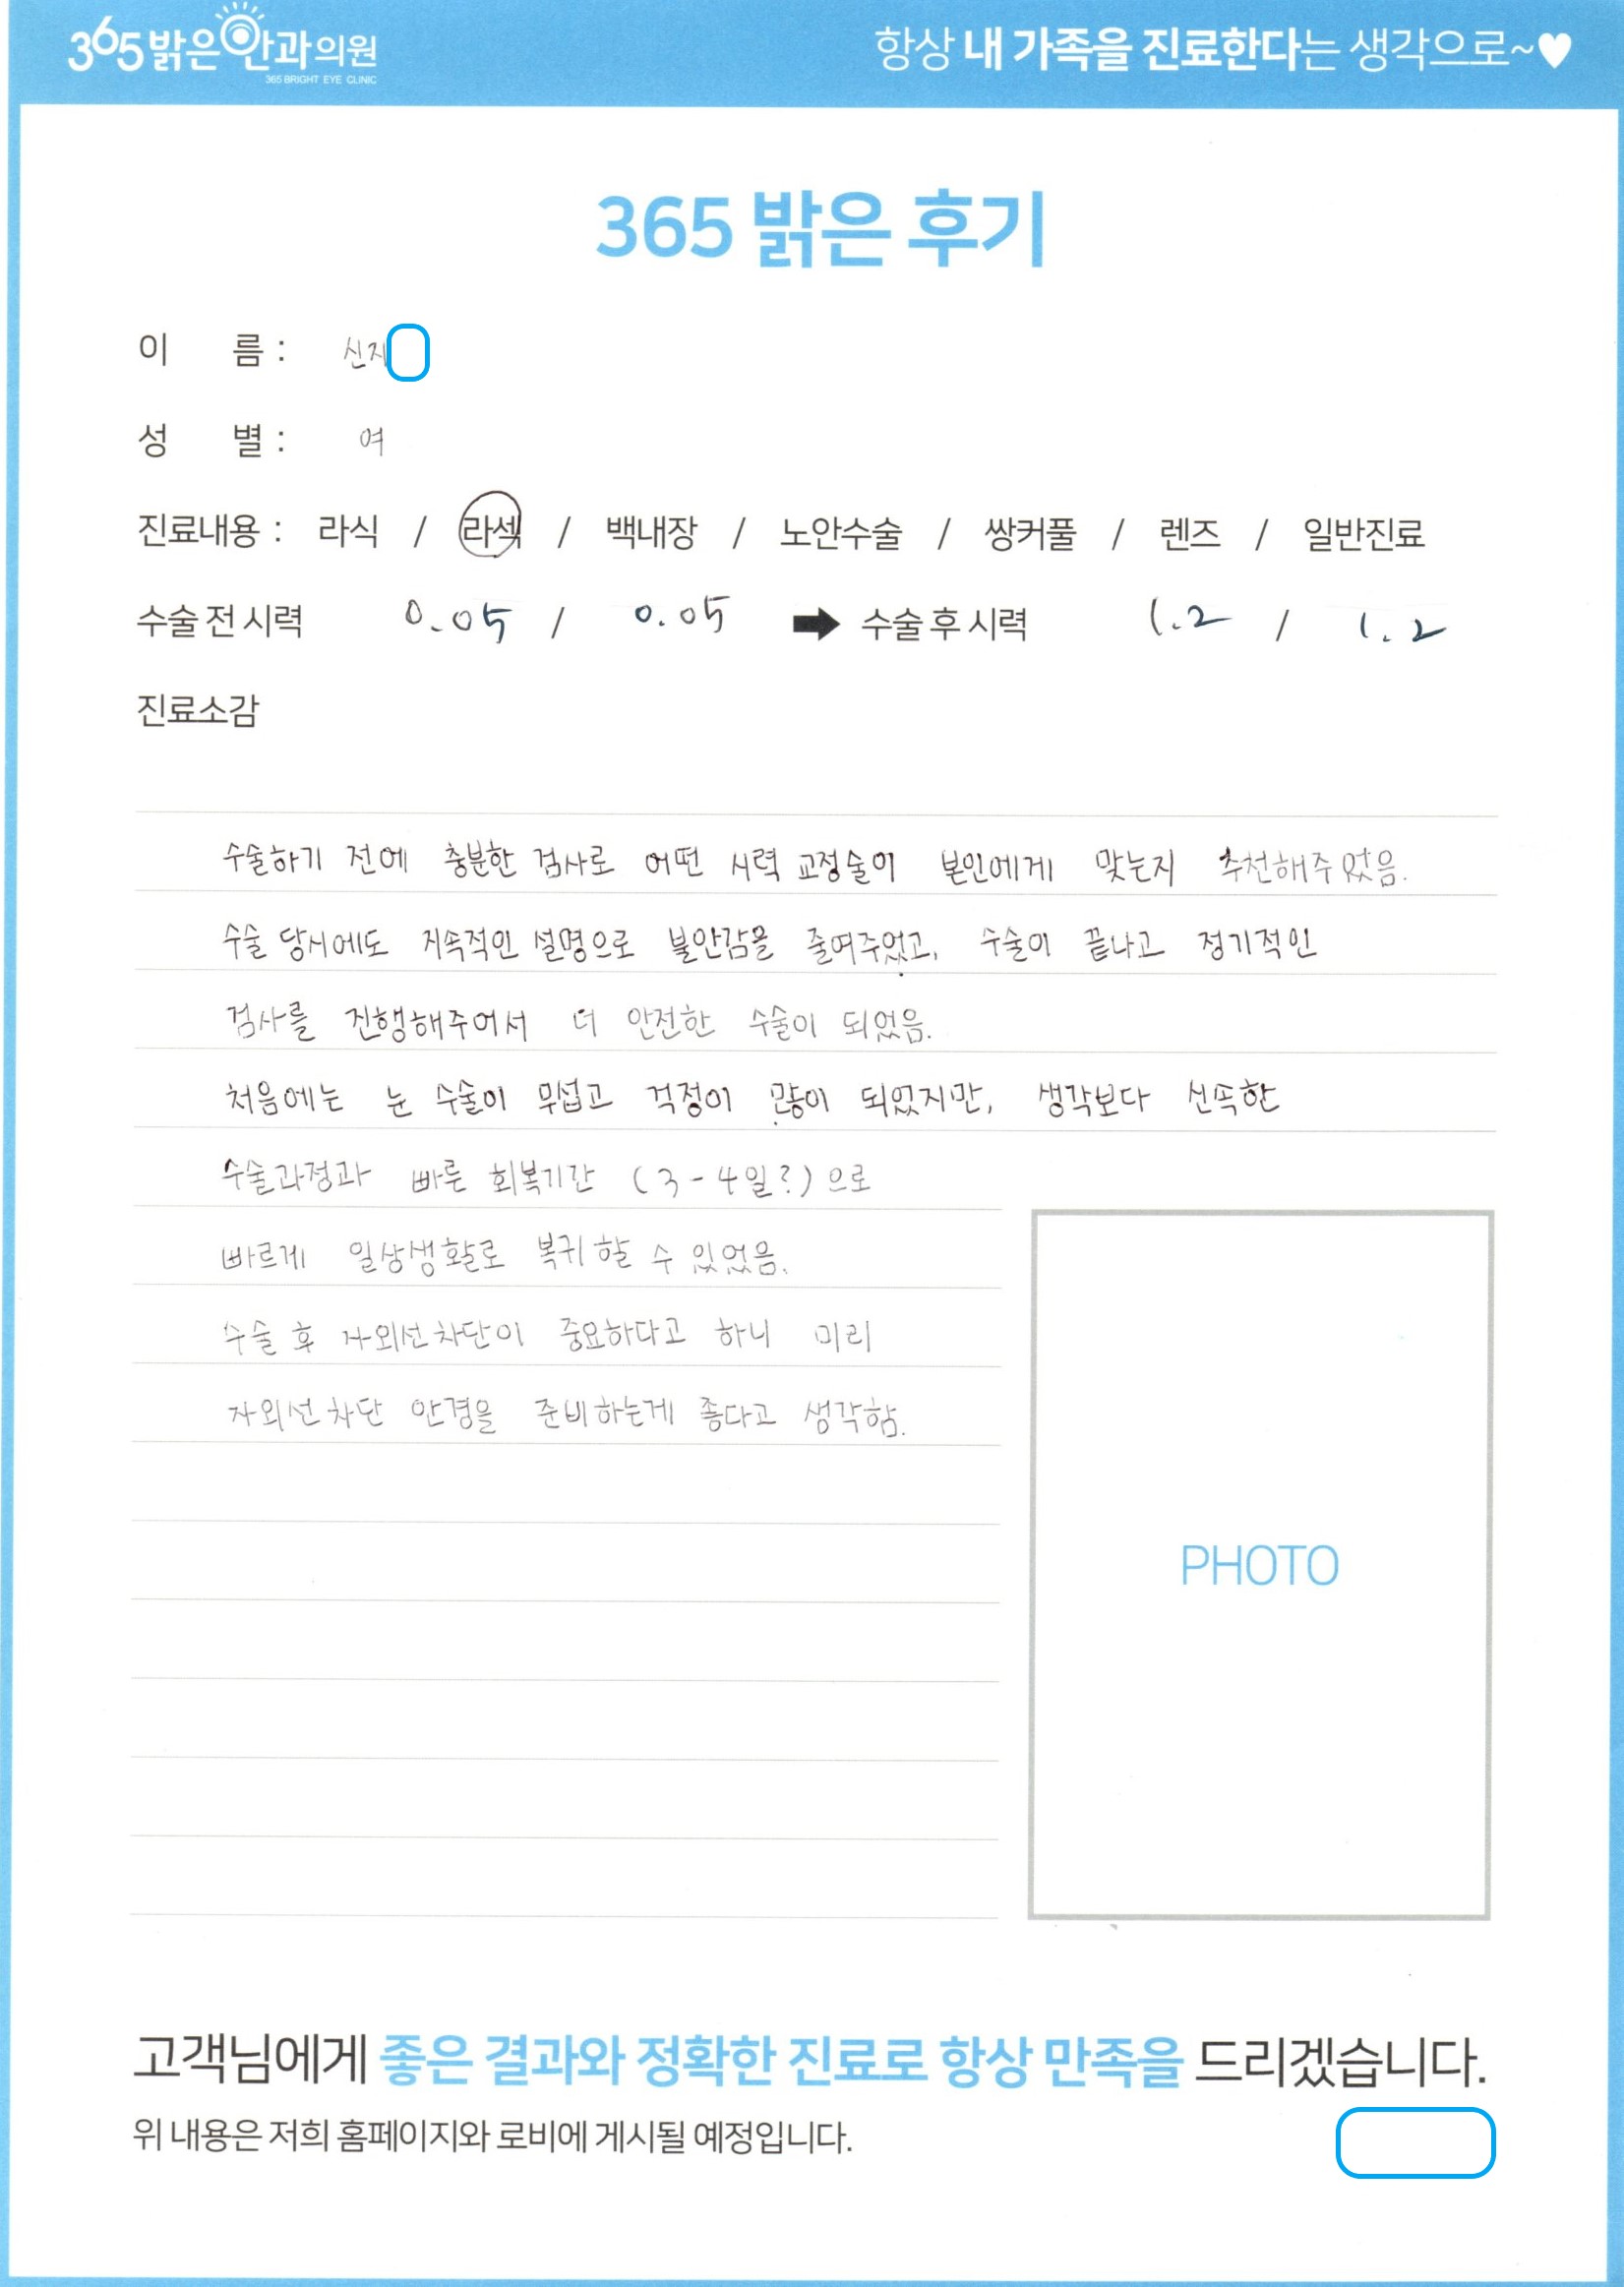 365밝은안과의원
365 BRIGHT EYE CLINIC
항상 내 가족을 진료한다는 생각으로~♥
365 밝은 후기
이 름 : 신지
성 별 : 여
진료내용 : 라식 / 라섹 / 백내장 / 노안수술 / 쌍커풀 / 렌즈 / 일반진료
수술 전 시력 0.05 / 0.05 ➡ 수술 후 시력 1.2 / 1.2
진료소감
수술하기 전에 충분한 검사로 어떤 시력 교정술이 본인에게 맞는지 추천해주었음.
수술 당시에도 지속적인 설명으로 불안감을 줄여주었고, 수술이 끝나고 정기적인
검사를 진행해주어서 더 안전한 수술이 되었음.
처음에는 눈 수술이 무섭고 걱정이 많이 되었지만, 생각보다 신속한
수술과정과 빠른 회복기간 (3-4일?)으로
빠르게 일상생활로 복귀 할 수 있었음.
수술 후 자외선차단이 중요하다고 하니 미리
자외선차단 안경을 준비하는게 좋다고 생각함.
PHOTO
고객님에게 좋은 결과와 정확한 진료로 항상 만족을 드리겠습니다.
위 내용은 저희 홈페이지와 로비에 게시될 예정입니다.